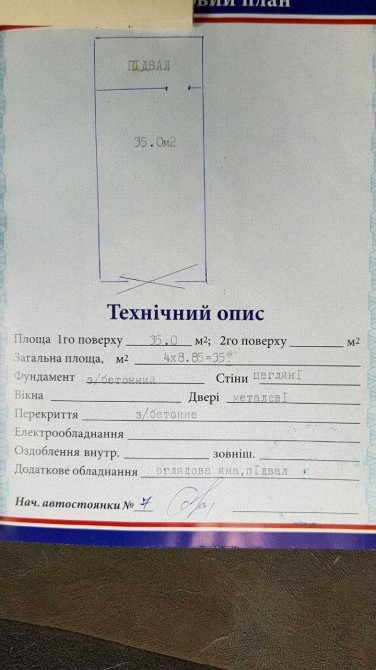 овий план
ПІДВАЛ
35.0м2
Технічний опис
Площа 1го поверху 35.0 м2; 2го поверху м2
Загальна площа, м2 4х8.85=35
Фундамент з/бетонний Стіни цегляні
Вікна Двері металеві
Перекриття з/бетонне
Електрообладнання
Оздоблення внутр. зовніш.
Додаткове обладнання оглядова яма, підвал
Нач. автостоянки № 7